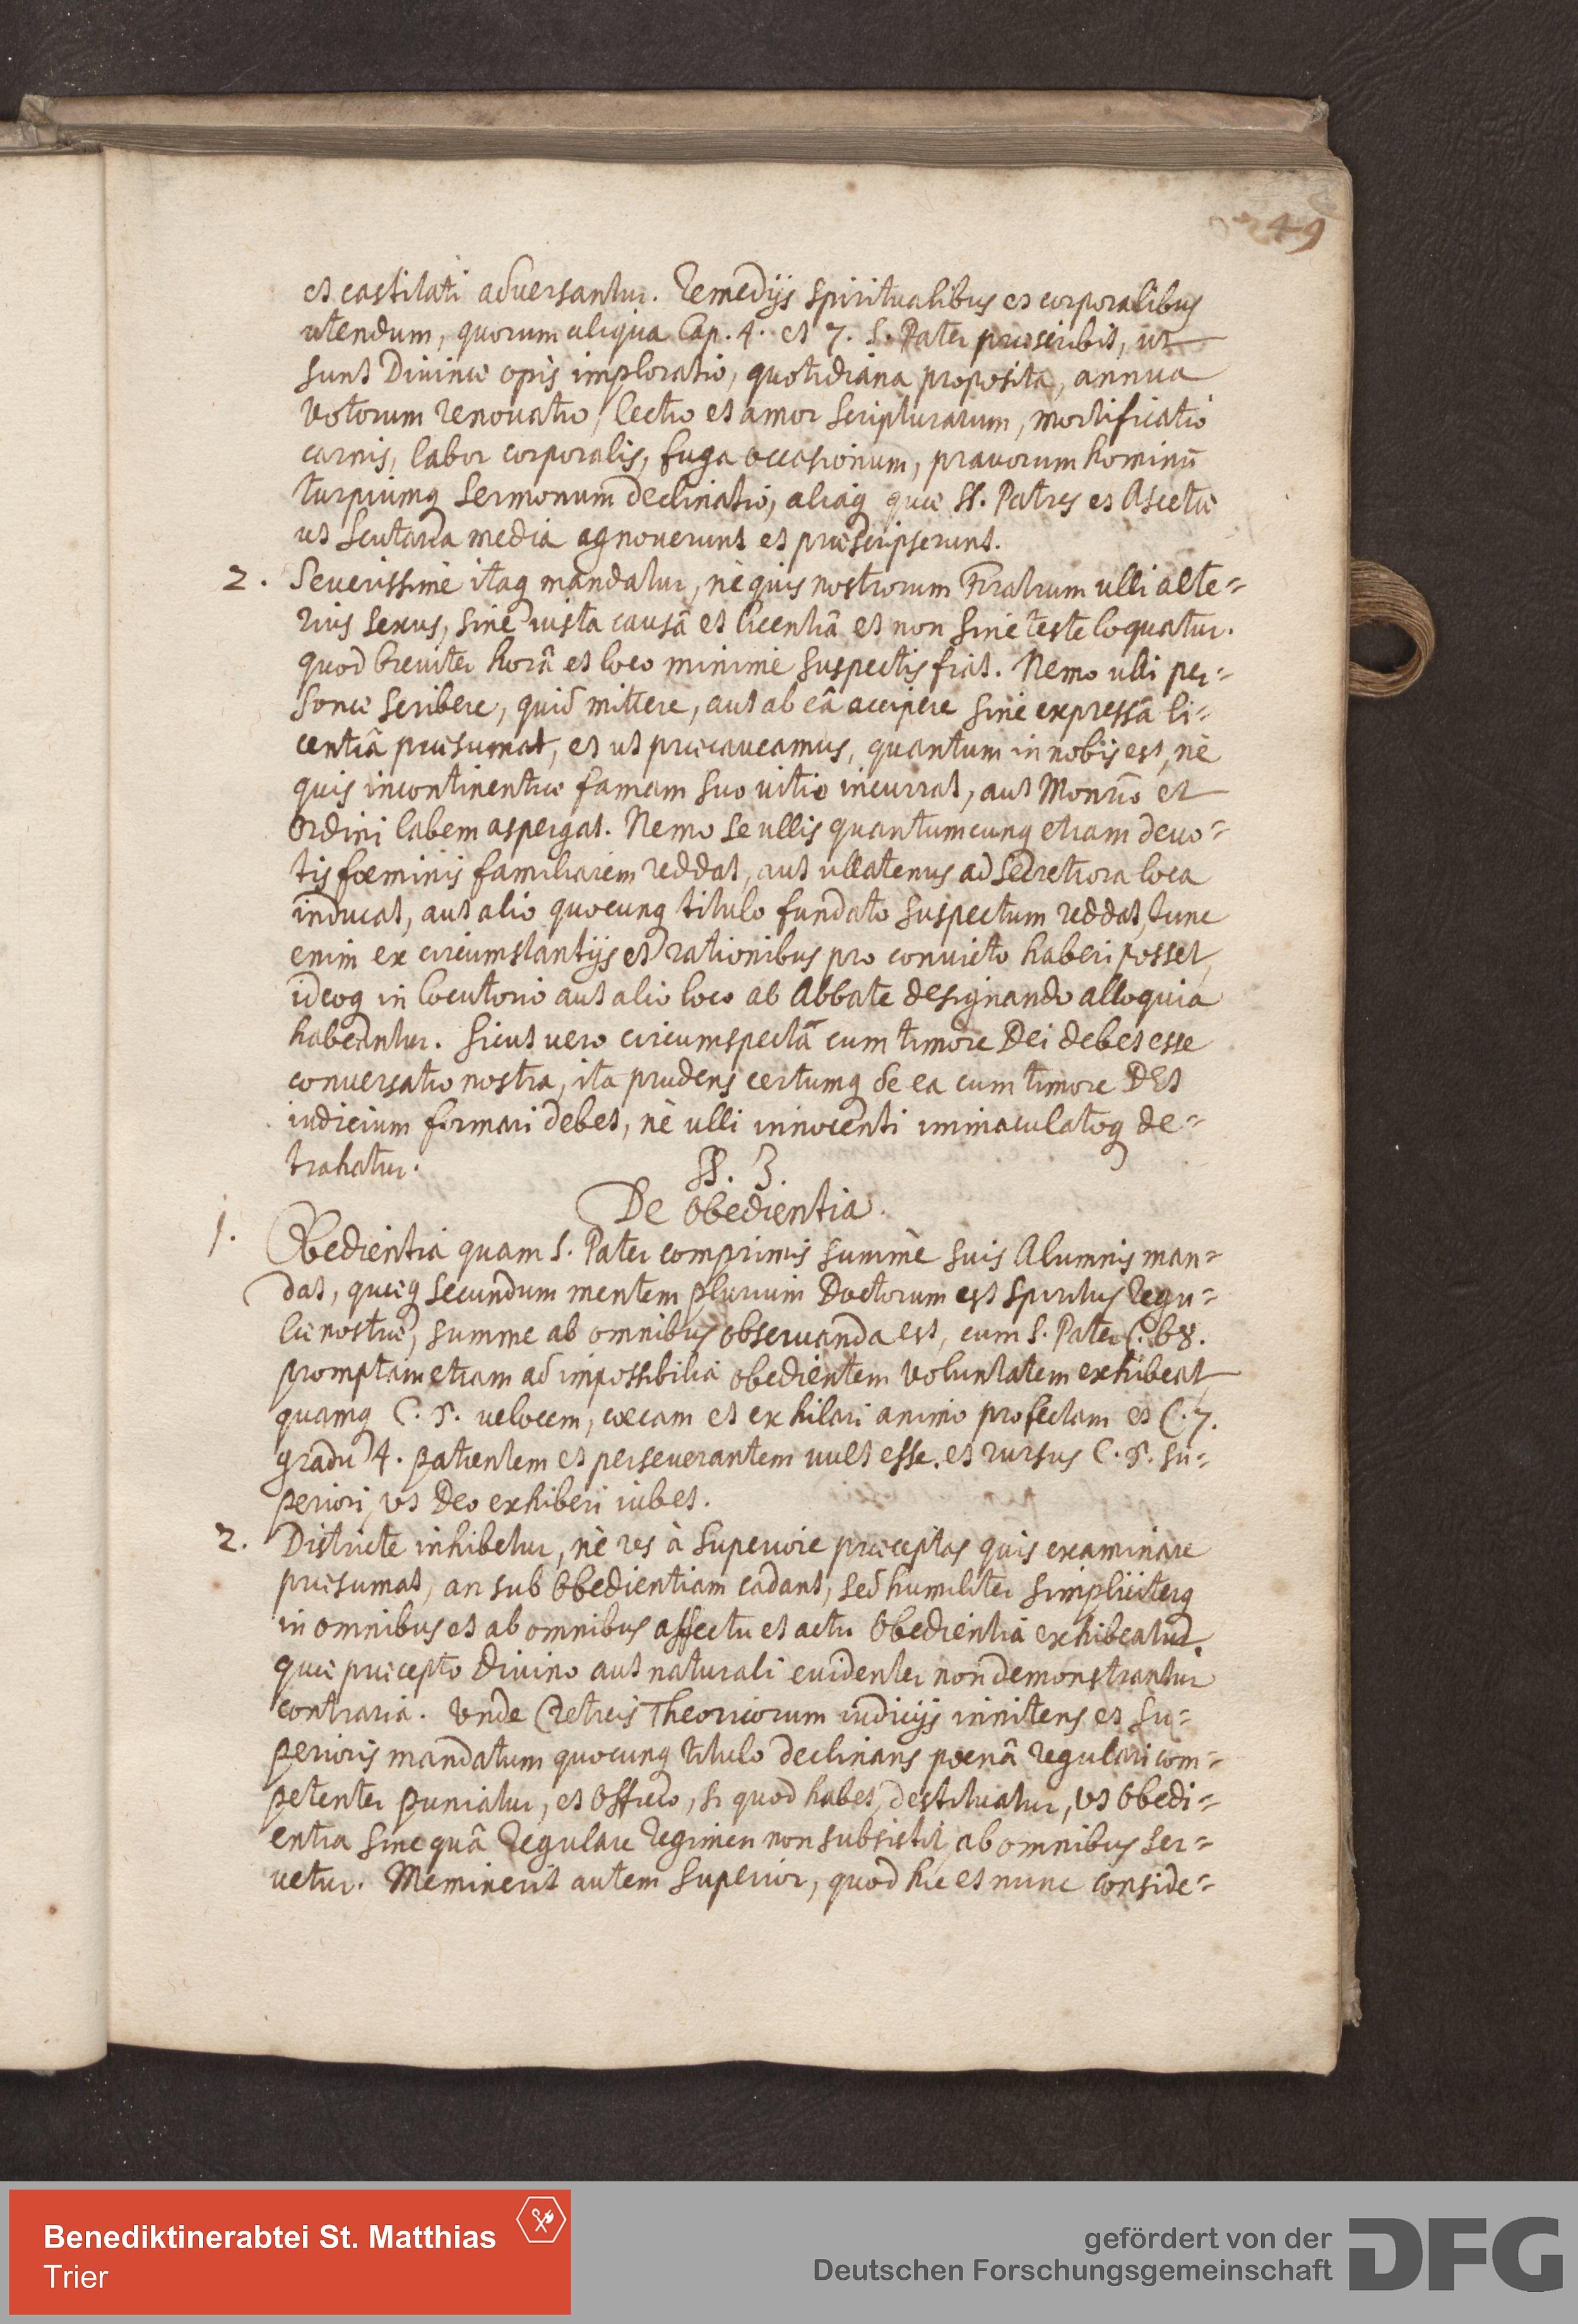 49
et castitati adversantur. Remedijs spiritualibus et corporalibus
utendum, quorum aliqua Cap. 4. et 7. S. Pater præscribit, ut
sunt Divinæ opis imploratio, quotidiana proposita, annua
Votorum renouatio, lectio et amor Scripturarum, mortificatio
carnis, labor corporalis, fuga occasionum, prauorum hominū
turpiumq sermonum declinatio, aliaq quæ SS. Patres et Ascetæ
ut salutaria media agnouerunt et præscripserunt.
2. Seuerissimè itaq mandatur, nè quis nostrorum Fratrum ulli alte=
rius sexus, sine iusta causâ et licentiâ et non sine teste loquatur.
quod breuiter horâ et loco minimè suspectis fiat. Nemo ulli per=
sonæ scribere, quid mittere, aut ab eâ accipere sine expressâ li=
centiâ præsumat, et ut præcaueamus, quantum in nobis est, nè
quis incontinentiæ famam suo vitio incurrat, aut Monrio et
Ordini labem aspergat. Nemo se ullis quantumcunq etiam deuo=
tis fœminis familiarem reddat, aut ullatenus ad secretiora loca
inducat, aut alio quocunq titulo fundato suspectum reddat, tunc
enim ex circumstantijs et rationibus pro conuicto haberi posset,
ideoq in locutorio aut alio loco ab Abbate designando alloquia
habeantur. Sicut vero circumspecta cum timore Dei debet esse
conuersatio nostra, ita prudens certumq de ea cum timore DEI
iudicium formari debet, nè ulli innocenti immaculatoq de=
trahatur.
§. 3.
De Obedientia.
1. Obedientia quam S. Pater comprimis summè suis Alumnis man=
dat, quæq secundum mentem plurium Doctorum est spiritus Regu=
læ nostræ, summe ab omnibus obseruanda est, cum S. Pater C. 68.
promptam etiam ad impossibilia obedientem voluntatem exhibeat,
quamq C. 5. velocem, cœcam et ex hilari animo profectam et C. 7.
gradu 4. patientem et perseuerantem vult esse, et rursus C. 5. su=
periori, vt Deo exhiberi iubet.
2. Districte inhibetur, nè res à Superiore præceptas quis examinare
præsumat, an sub Obedientiam cadant, sed humiliter simpliciterq
in omnibus et ab omnibus affectu et actu Obedientia exhibeatur
quæ præcepto Diuino aut naturali euidenter non demonstrantur
contraria. Vnde Theoricorum iudicijs innitens et Su=
perioris mandatum quocunq titulo declinans pœnâ regulari com=
petenter puniatur, et Officio, si quod habet, destituatur, vt Obedi=
entia sine quâ Regulare Regimen non subsistit, ab omnibus ser=
uetur. Meminerit autem Superior, quod hic et nunc conside=
Benediktinerabtei St. Matthias
Trier
gefördert von der
Deutschen Forschungsgemeinschaft
DFG